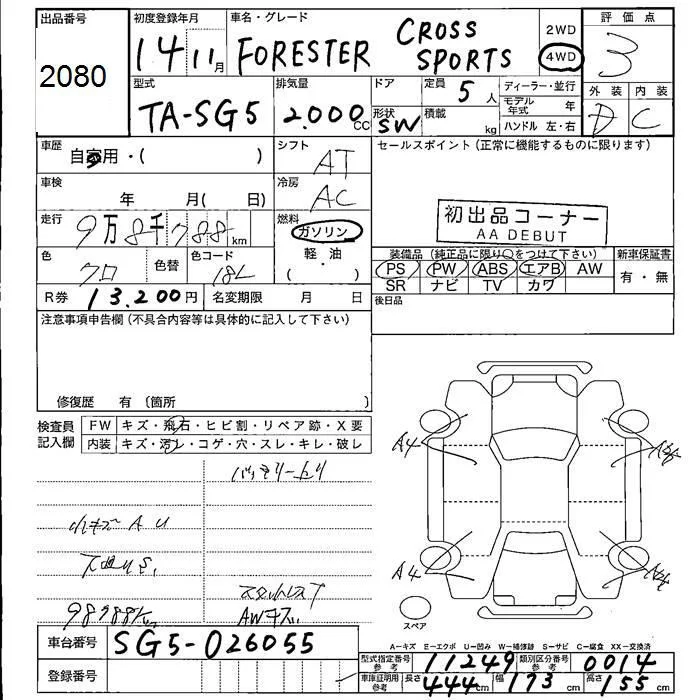 出品番号
2080
初度登録年月
14 11月
車名・グレード
FORESTER CROSS SPORTS
2WD
4WD
評価点
3
外装 内装
D C
型式
TA-SG5
排気量
2.000cc
ドア
形状
SW
定員
5人
積載
kg
ディーラー・並行
モデル年式 年
ハンドル 左・右
車歴
自家用・( )
シフト
AT
セールスポイント(正常に機能するものに限ります)
車検
年 月( 日)
冷房
AC
初出品コーナー
AA DEBUT
走行
9万8千788km
燃料
ガソリン
軽・油
・( )
色
クロ
色替
色コード
18L
装備品(純正品に限り○をつけて下さい)
PS PW ABS エアB AW
SR ナビ TV カワ
新車保証書
有・無
R券 13.200円
名変期限 月 日
後日品
注意事項申告欄(不具合内容等は具体的に記入して下さい)
修復歴 有(箇所 )
検査員記入欄
FW キズ・飛石・ヒビ割・リペア跡・X要
内装 キズ・汚レ・コゲ・穴・スレ・キレ・破レ
バッテリー上り
小キズ A U
98988km
スタットレス T
AWキズ
A4
A4
スペア
車台番号
SG5-026055
登録番号
A-キズ E-エクボ U-凹み W-補修跡 S-サビ C-腐食 XX-交換済
型式指定番号参考 11249
類別区分番号参考 0014
車庫証明用参考 長さ 444cm 幅 173cm 高さ 155cm